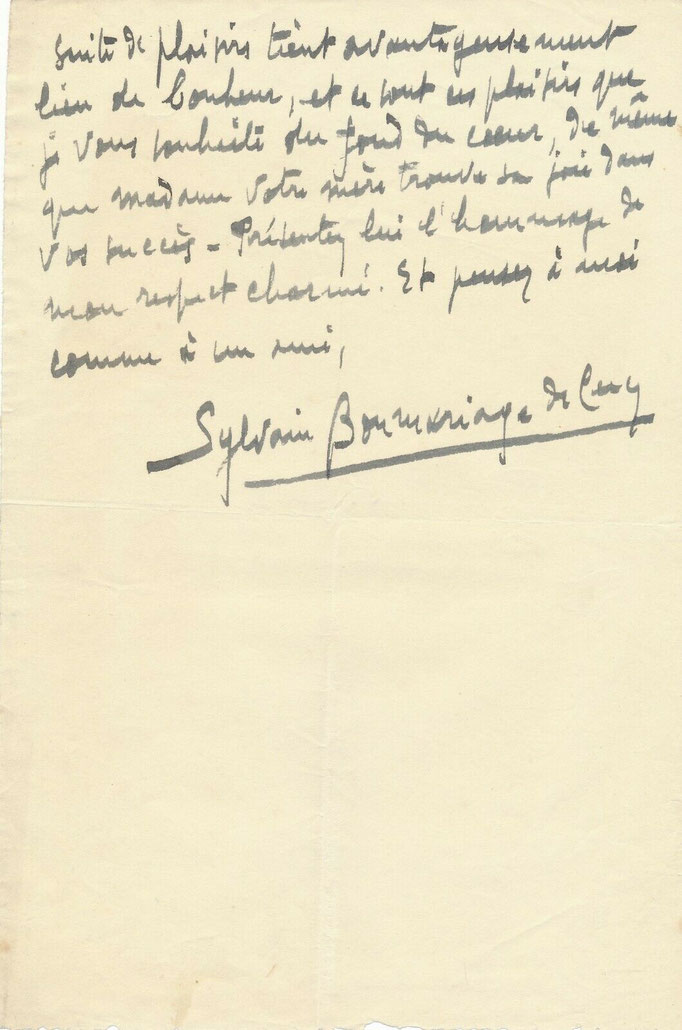 suite de plaisirs tient avantageusement
lieu de bonheur, et ce sont ces plaisirs que
je vous souhaite du fond du cœur, de même
que madame votre mère trouve sa joie dans
vos succès - Présentez lui l'hommage de
mon respect charmé. Et pensez à moi
comme à un ami,
Sylvain Bonmariage de Cercy